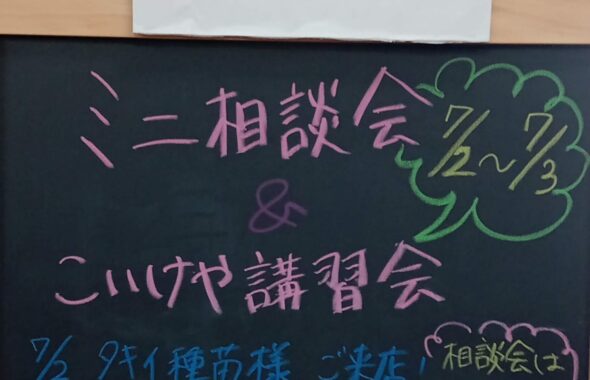 ミニ相談会
7/2～7/3
&
こいけや講習会
7/2 タキイ種苗様 ご来店！
相談会は